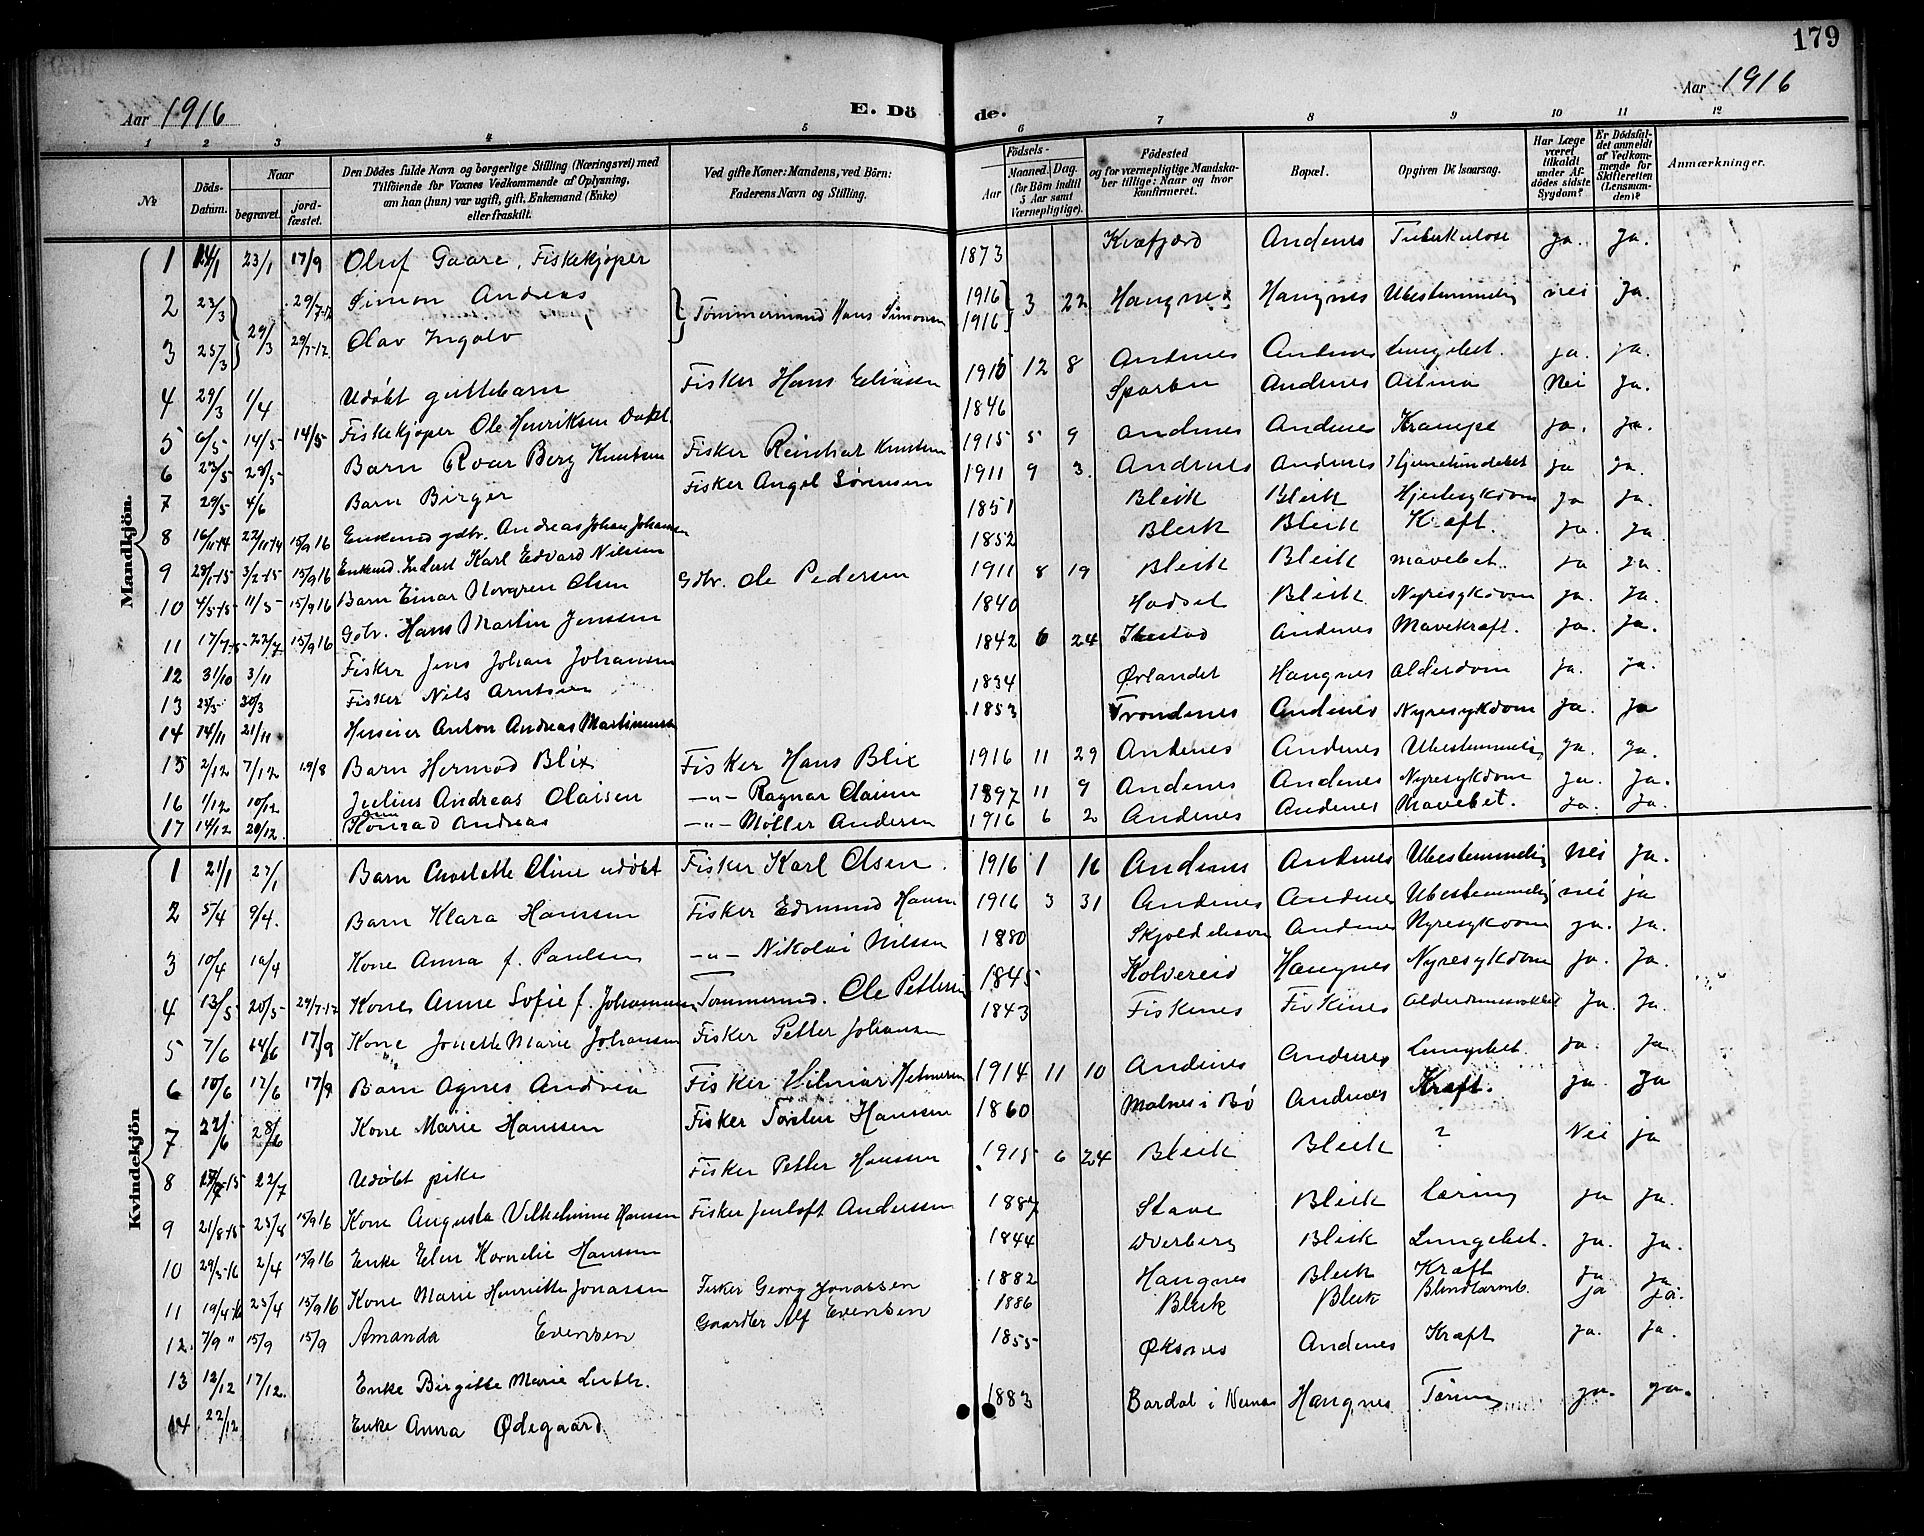 179
Aar 1916
E. Döde.
Aar 1916
1 2 3 4 5 6 7 8 9 10 11 12
№
Döds-Datum.
Naar
begravet.
jordfæstet.
Den Dödes fulde Navn og borgerlige Stilling (Næringsvei) med Tilföiende for Voxnes Vedkommende af Oplysning, om han (hun) var ugift, gift, Enkemand (Enke) eller fraskilt.
Ved gifte Koner: Mandens, ved Börn: Faderens Navn og Stilling.
Födsels-
Aar
Maaned. Dag.
(for Börn indtil 5 Aar samt Værnepligtige).
Födested og for værnepligtige Mandskaber tillige: Naar og hvor konfirmeret.
Bopæl.
Opgiven Dödsaarsag.
Har Læge været tilkaldt under Afdödes sidste Sygdom?
Er Dödsfaldet anmeldt af Vedkommende for Skifteretten (Lensmanden)?
Anmærkninger.
Mandkjön.
1 23/1 17/9 Oluf Gaare, Fiskekjøper 1873 Kvæfjord Andenes Tuberkulose Ja. Ja.
2 23/3 29/7-17 Simon Andreas Tømmermand Hans Simonsen 1916 3 22 Haugnes Haugnes Ubestemmelig nei Ja.
3 25/3 29/3 29/7-17 Olav Ingolv 1916
4 29/3 1/4 Udøbt guttebarn Fisker Hans Eliassen 12 8 Andenes Andenes Lungebet. ja. ja.
5 6/5 14/5 14/5 Fiskekjøper Ole Henriksen 1846 Sparbu Andenes Nei Ja.
6 23/5 29/5 Barn Roar Berg Knutsen Fisker Reinhart Knutsen 1915 5 9 Andenes Andenes Krampe ja. ja.
7 29/5 4/6 Barn Birger Fisker Angel Sørensen 1911 9 3. Andenes Andenes ja ja.
8 16/11-14 22/11-14 15/9 16 Enkemd gdbr. Andreas Johan Johansen 1851 Bleik Bleik Hjertesykdom ja ja.
9 28/1-15 3/2-15 15/9 16 Enkemd. Inderst Karl Edvard Nilssen 1852 Bleik Bleik Kræft. ja. ja.
10 4/5-15 11/5 15/9 16 Barn Einar Norgren Olsen Gdbr. Ole Pedersen 1911 8 19 Bleik Bleik mavebet. ja ja.
11 17/7-15 22/7 15/9 16 Gdbr. Hans Martin Jenssen 1840 Hadsel Bleik Nyresykdom ja. Ja.
12 31/10 3/11 Fisker Jens Johan Johansen 1842 6 24 Ibestad Andenes Mavekræft. ja. Ja.
13 20/3 Fisker Nils Arntsen 1834 Ørlandet Haugnes Alderdom ja. ja.
14 14/11 21/11 Huseier Anton Andreas Martinussen 1853 Trondenes Andenes Nyresykdom ja. ja
15 2/12 7/12 19/8 Barn Hermod Blix Fisker Hans Blix 1916 11 29 Andenes Andenes Ubestemmelig ja. ja.
16 1/12 10/12 Julius Andreas Claisen -"- Ragnar Claisen 1897 11 9 Andenes Andenes Nyresykdom ja. Ja.
17 14/12 20/12. Konrad Andreas -"- Møller Andersen 1916 6 2 Andenes Andenes Mavebet. ja. ja.
Kvindekjön
1 21/1 23/1 Barn Charlotte Oline udøbt Fisker Karl Olsen. 1916 1 16 Andenes Andenes Ubestemmelig Nei Ja.
2 5/4 9/4. Barn Klara Hanssen Fisker Edmund Hansen 1916 3 31 Andenes Andenes Ubestemmelig nei ja
3 10/4 16/4 Kone Anna f. Paulsen -"- Nikolai Nilssen 1880 Andenes Nyresykdom ja. Ja.
4 13/5 20/5 29/7-17 Kone Anne Sofie f. Johannesen Tømmermd. Ole Pettersen 1845 Kolvereid Haugnes Nyresykdom Ja. Ja.
5 7/6 14/6 17/9 Kone Jonette Marie Johansen Fisker Petter Johansen 1843 Fiskenes Fiskenes Ja. Ja.
6 10/6 17/6 17/9 Barn Agnes Andrea Fisker Hilmar Helmersen 1914 11 10 Andenes Andenes Lungebet. ja. Ja
7 22/6 28/6 Kone Marie Hanssen Fisker Torsten Hanssen 1860 Malnes i Bø Andenes Kræft. ja. Ja
8 22/7 Udøbt pike Fisker Petter Hanssen 1915 6 24 Bleik Bleik ? Nei ja
9 21/8-15 25/8 15/9 16 Kone Augusta Vilhelmine Hansen Fisker Jenloft Anderssen 1887 Stave Bleik tæring ja Ja.
10 29/3-16 2/4 15/9 16 Enke Elen Kornelie Hanssen 1844 Dverberg Bleik Lungebet. Ja. Ja.
11 19/4-16 25/4 15/9 16 Kone Marie Henriette Jonassen Fisker Georg Jonassen 1882 Haugnes Bleik Kræft ja ja
12. 7/9 " 15/9 15/9 Amanda Evensen Gaardbr Alf Evensen 1886 Bleik Bleik Blindtarmb. ja ja.
13 12/12 17/12. Enke Birgitte Marie 1855 Øksnes Andenes Kræft Ja. Ja.
14 22/12 Enke Anna Ødegaard 1883 Bardal i Haugnes Tæring ja. ja.